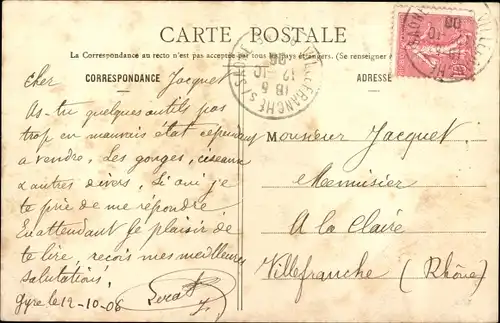 CARTE POSTALE
La Correspondance au recto n'est pas acceptée par tous les pays étrangers. (Se renseigner
CORRESPONDANCE
ADRESSE
VILLEFRANCHE S/ SAÔNE
18 5
12-10
06
Cher Jacquet
As-tu quelques outils pas
trop en mauvais état cependant
a vendre. Les gouges, ciseaux
& autres divers, Si oui je
te prie de me repondre.
En attendant le plaisir de
te lire, recois mes meilleures
salutations.
12-10-06
Monsieur Jacquet
Menuisier
A la Claire
Villefranche (Rhône)